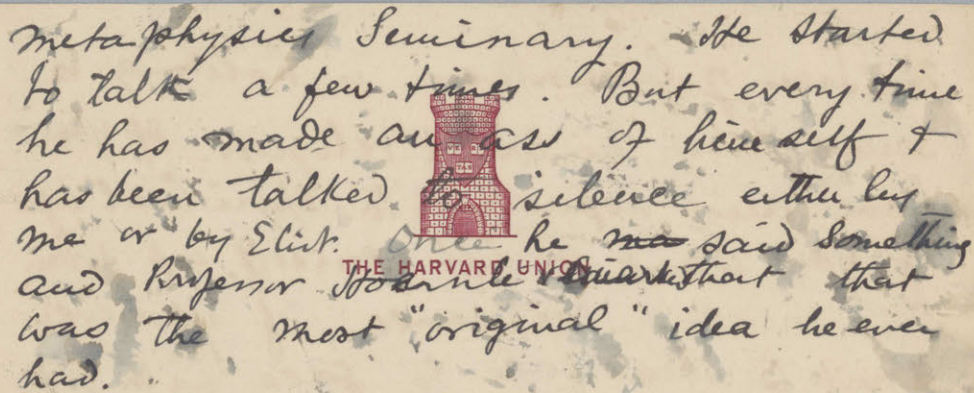 metaphysics Seminary. He started
to talk a few times. But every time
he has made an ass of himself &
has been talked to silence either by
me or by Eliot. Once he said something
THE HARVARD UNION
and Professor Hoernle remarked that that
was the most "original" idea he ever
had.